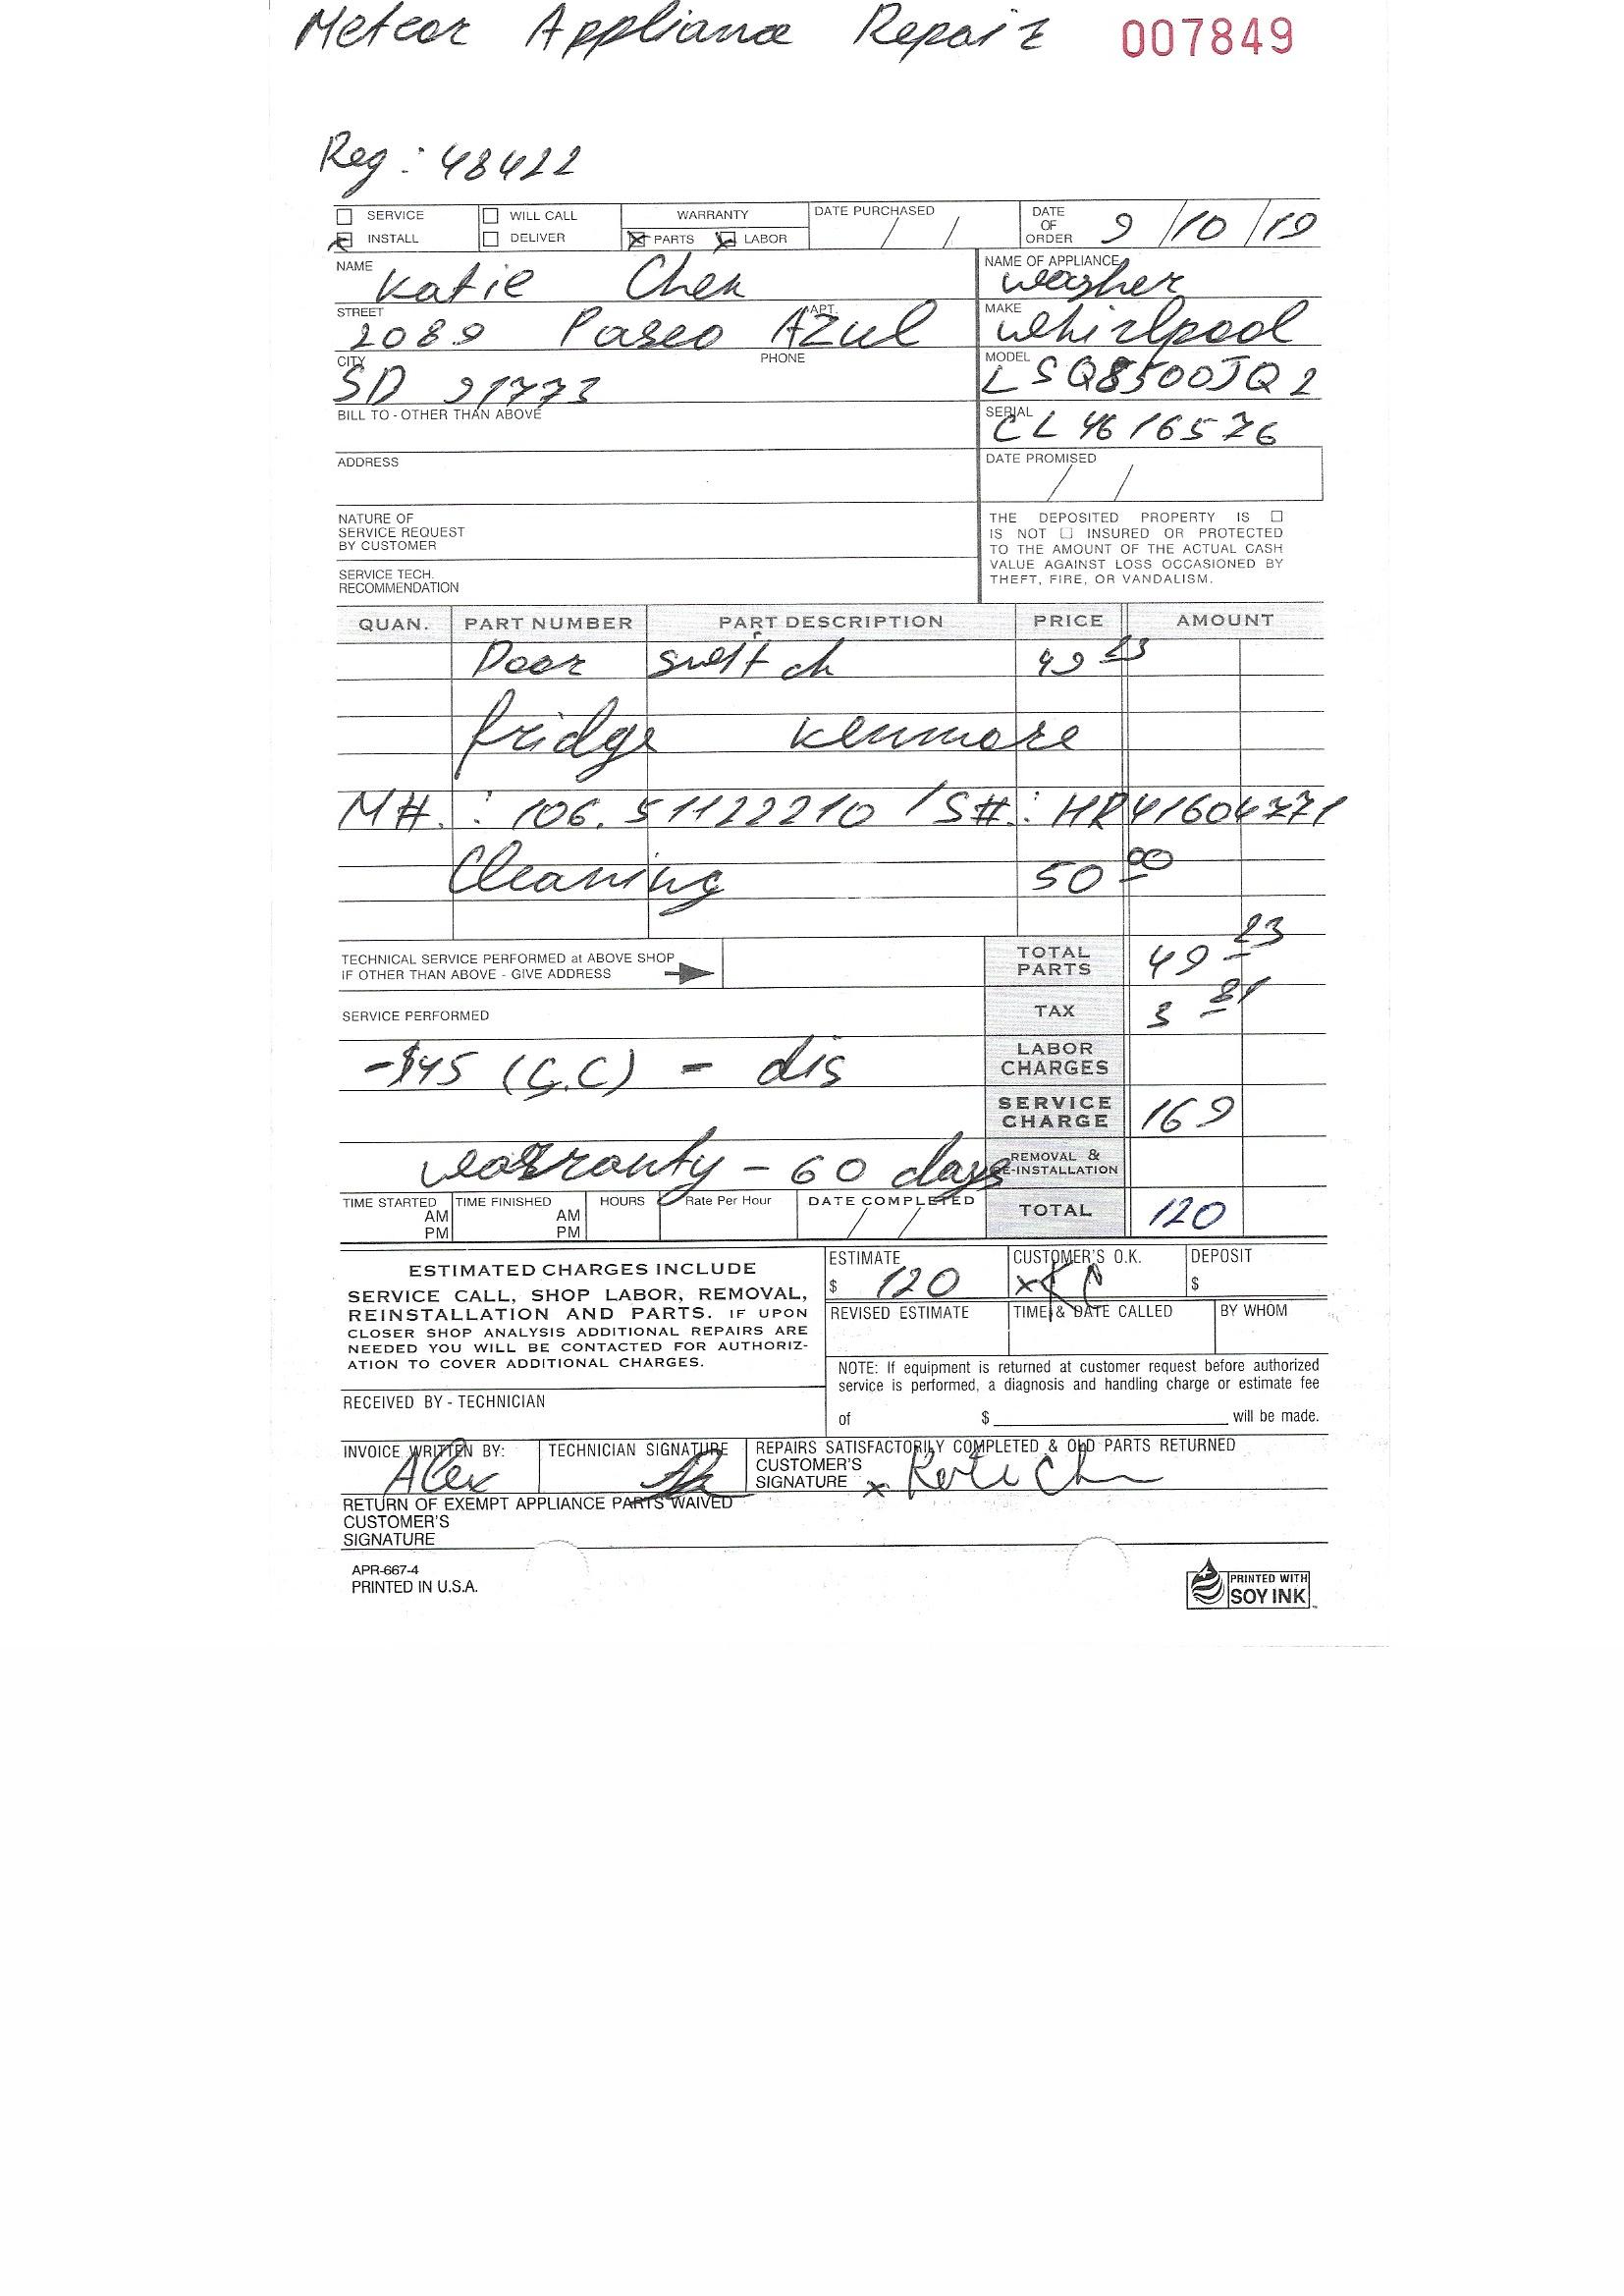 Meteor Appliance Repair 007849
Reg: 48422
SERVICE WILL CALL WARRANTY DATE PURCHASED / / DATE OF ORDER 9/10/19
INSTALL DELIVER PARTS LABOR
NAME Katie Chen NAME OF APPLIANCE washer
STREET 2089 Paseo Azul APT. MAKE Whirlpool
CITY SD 91773 PHONE MODEL LSQ8500JQ2
BILL TO - OTHER THAN ABOVE SERIAL CL4616576
ADDRESS DATE PROMISED / /
NATURE OF
SERVICE REQUEST
BY CUSTOMER
SERVICE TECH.
RECOMMENDATION
THE DEPOSITED PROPERTY IS
IS NOT INSURED OR PROTECTED
TO THE AMOUNT OF THE ACTUAL CASH
VALUE AGAINST LOSS OCCASIONED BY
THEFT, FIRE, OR VANDALISM.
QUAN. PART NUMBER PART DESCRIPTION PRICE AMOUNT
Door switch 49 23
fridge kenmore
M#.: 106.51122210 / S#.: HR41604771
Cleaning 50 00
TECHNICAL SERVICE PERFORMED at ABOVE SHOP
IF OTHER THAN ABOVE - GIVE ADDRESS
TOTAL PARTS 49 23
SERVICE PERFORMED TAX 3 81
-$45 (G.C) - dis LABOR CHARGES
SERVICE CHARGE 169
warranty - 60 days REMOVAL & RE-INSTALLATION
TIME STARTED AM PM TIME FINISHED AM PM HOURS Rate Per Hour DATE COMPLETED / / TOTAL 120
ESTIMATED CHARGES INCLUDE
SERVICE CALL, SHOP LABOR, REMOVAL,
REINSTALLATION AND PARTS. IF UPON
CLOSER SHOP ANALYSIS ADDITIONAL REPAIRS ARE
NEEDED YOU WILL BE CONTACTED FOR AUTHORIZ-
ATION TO COVER ADDITIONAL CHARGES.
ESTIMATE $ 120 CUSTOMER'S O.K. x KC DEPOSIT $
REVISED ESTIMATE TIME & DATE CALLED BY WHOM
NOTE: If equipment is returned at customer request before authorized
service is performed, a diagnosis and handling charge or estimate fee
of $ will be made.
RECEIVED BY - TECHNICIAN
INVOICE WRITTEN BY: Alex TECHNICIAN SIGNATURE REPAIRS SATISFACTORILY COMPLETED & OLD PARTS RETURNED
CUSTOMER'S
SIGNATURE x
RETURN OF EXEMPT APPLIANCE PARTS WAIVED
CUSTOMER'S
SIGNATURE
APR-667-4
PRINTED IN U.S.A.
PRINTED WITH
SOY INK